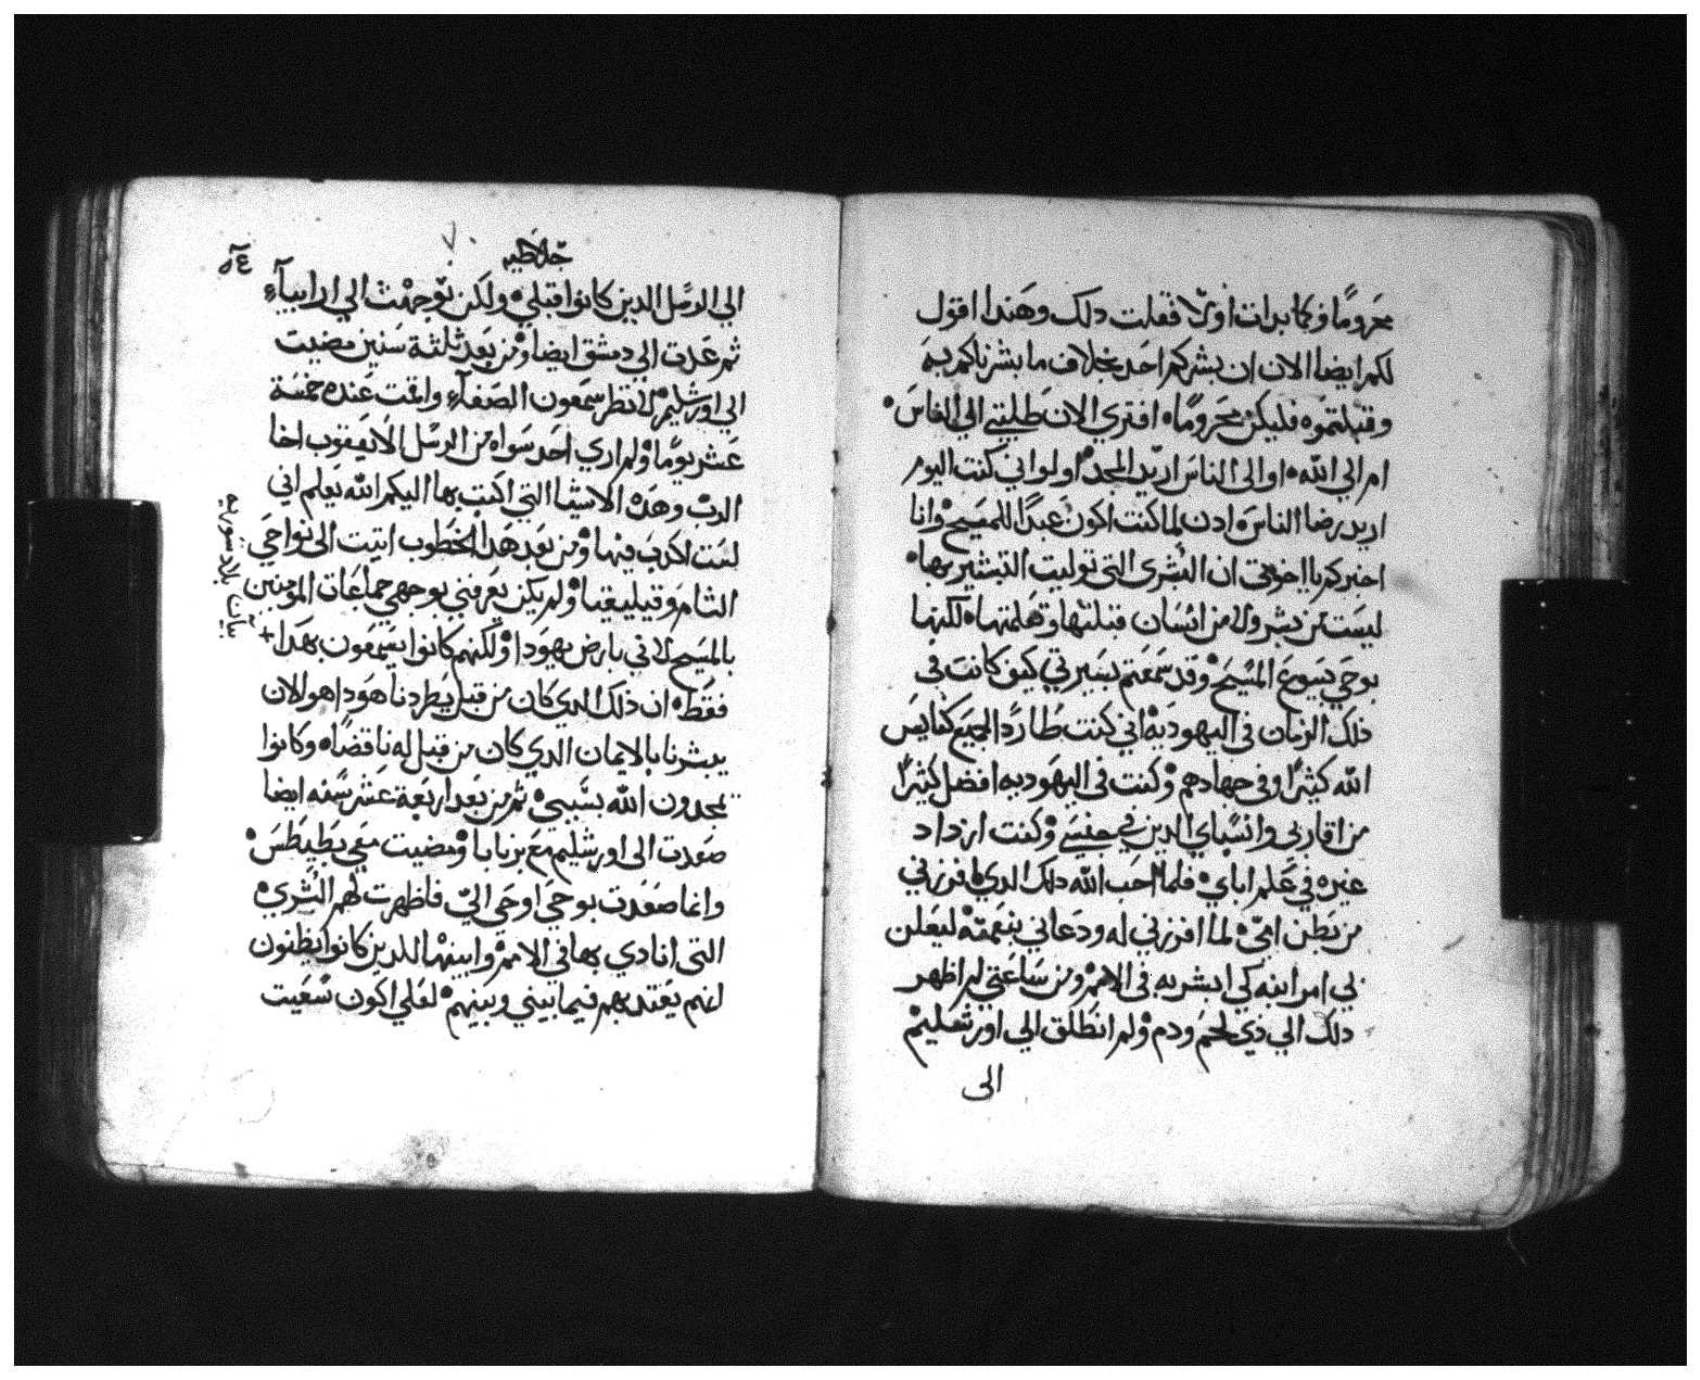 محروما وكما بدات اولا فقلت دلك وهندا اقول
لكم ايضا الان ان بشركم احد بخلاف ما بشرناكم به
وقبلتموه فليكن محروما افتري الان طلبتي الي الناس
ام الي الله او الى الناس اريد المجد او لو اني كنت اليوم
اريد رضا الناس ادن لما كنت اكون عبدا للمسيح وانا
اخبركم يا اخوتي ان البشرى التي توليت التبشير بها
ليست من بشر ولا من انسان قبلتها وتعلمتها لكنها
بوحي يسوع المسيح وقد سمعتم بسيرتي كيف كانت في
ذلك الزمان في اليهوديه اني كنت طاردا لجميع كنايس
الله كثيرا وفي جهادهم وكنت في اليهوديه افضل كثيرا
من اقاربي وانسباي الدين في جنسي وكنت ازداد
غيره في علم اباي فلما احب الله دلك الدي افرزني
من بطن امي لما افرزني له ودعاني بنعمته ليعلن
لي امر ابنه كي ابشر به في الامم ومن ساعتي لم اظهر
دلك الي دي لحم ودم ولم انطلق الي اورشليم
الى
جلاطيه
٥٤
الي الرسل الدين كانوا قبلي ولكن توجهت الي ارابياء
ثم عدت الي دمشق ايضا ومن بعد ثلثة سنين مضيت
الي اورشليم لانظر سمعون الصفاء واقمت عنده خمسة
عشر يوما ولم اري احد سواه من الرسل الا يعقوب اخا
الرب وهده الاشيا التي اكتب بها اليكم الله يعلم اني
لست اكدب فيها ومن بعد هدا الخطوب اتيت الى نواحي
الشام وقيليقيا ولم يكن يعرفني بوجهي جماعات المومنين
بالمسيح الاني بارض يهودا ولكنهم كانوا يسمعون بهدا +
فقط ان ذلك الدي كان من قبل يطردنا هودا هو الان
يبشرنا بالايمان الدي كان من قبل له ناقضا وكانوا
يمجدون الله بسببي ثم من بعد اربعة عشر سنه ايضا
صعدت الى اورشليم مع برنابا ومضيت معي بطيطس
وانما صعدت بوحي اوحي الي فاظهرت لهم البشري
التي انادي بها في الامم وابينها للدين كانوا يظنون
انهم يعتد بهم فيما بيني وبينهم لعلي اكون سعيت
بلاد سوريه